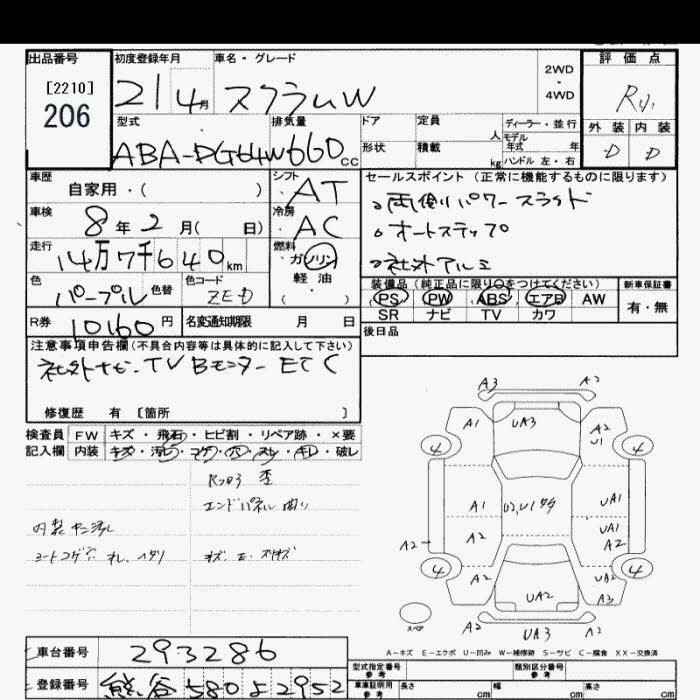 出品番号 初度登録年月 車名・グレード 2WD・4WD 評価点
[2210]
206
21 4月 スクラムW
型式 排気量 ドア 定員 人 ディーラー・並行
モデル年式 年
ABA-DG64W 660cc 形状 積載 kg ハンドル 左・右
外装 内装
D D
車歴 シフト セールスポイント (正常に機能するものに限ります)
自家用・( ) AT 両側パワースライド
車検 冷房 オートステップ
8年2月( 日) AC 社外アルミ
走行 燃料
14万7千640km ガソリン
軽油
( )
色 色替 色コード
パープル
装備品(純正品に限り○をつけてください) 新車保証書
PS PW ABS エアB AW 有・無
SR ナビ TV カワ
R券 10160円 名変通知期限 月 日
後日品
注意事項申告欄(不具合内容等は具体的に記入して下さい)
社外ナビ TV Bモニター ETC
修復歴 有 [箇所 ]
検査員 FW キズ・飛石・ヒビ割・リペア跡・×要
記入欄 内装 キズ・汚レ・コゲ・穴・スレ・キレ・破レ
エンドパネル曲り
A3 A2
A1 UA3 A2
U1
4 4
A1 UA1
A2 A2 UA1
A2
4 4
A2 UA2 UA2
A3
A2
UA3
スペア
A-キズ E-エクボ U-凹み W-補修跡 S-サビ C-腐食 XX-交換済
車台番号 293286
登録番号 熊谷 580 よ 2952
型式指定番号 参考 類別区分番号 参考
車庫証明用 参考 長さ cm 幅 cm 高さ cm